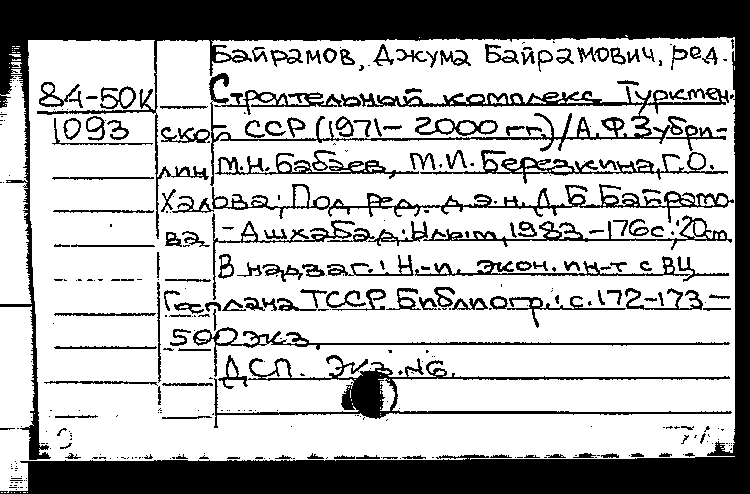 Байрамов, Джума Байрамович, ред.
84-50к Строительный комплекс Туркмен-
1093 ской ССР (1971-2000 гг.)/А.Ф.Зубри-
лин, М.Н.Бабаев, М.И.Березкина, Г.О.
Халова; Под ред. д.э.н. Д.Б.Байрамо-
ва. - Ашхабад: Ылым, 1983.-176с.; 20см.
В надзаг.: Н.-и. экон. ин-т с ВЦ
Госплана ТССР. Библиогр.: с.172-173 -
500 экз.
ДСП. Экз. №6.